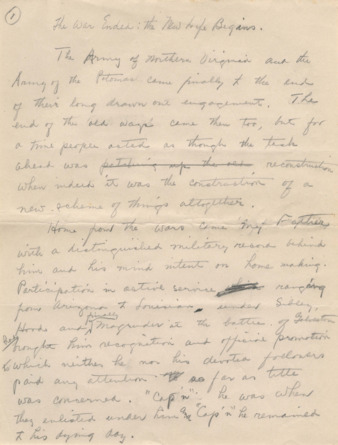 1
The War Ended: the New Life Begins.
The Army of Northern Virginia and the
Army of the Potomac came finally to the end
of their long drawn out engagement. The
end of the old ways came then too, but for
a time people acted as though the task
ahead was patching up the old reconstruction
when indeed it was the construction of a
new scheme of things altogether.
Home from the wars came
with a distinguished military record behind
him and his mind intent on home making.
Participation in active service ranging
from Arizona to Louisiana under Sibley,
Hood and Magruder at the battle of Galveston
brought him recognition and official promotion
to which neither he nor his devoted followers
paid any attention so far as title
was concerned. "Cap'n" he was when
they enlisted under him & "Cap'n" he remained
to his dying day.